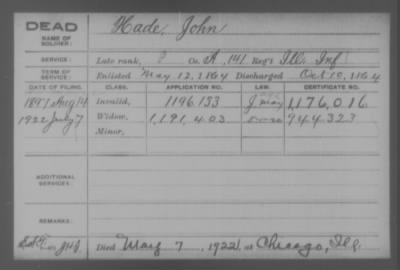 DEAD
NAME OF SOLDIER:
Hade, John
SERVICE:
Late rank, P Co. A, 141 Reg't Ill. Inf.
TERM OF SERVICE:
Enlisted May 12, 1864 Discharged Oct 10, 1864
DATE OF FILING. CLASS. APPLICATION NO. LAW. CERTIFICATE NO.
1897 Aug 14 Invalid, 1196.133 1,176,016
1922 July 7 Widow, 1,191,403 944323
Minor,
ADDITIONAL SERVICES:
REMARKS:
Died May 7, 1922, at Chicago, Ill.